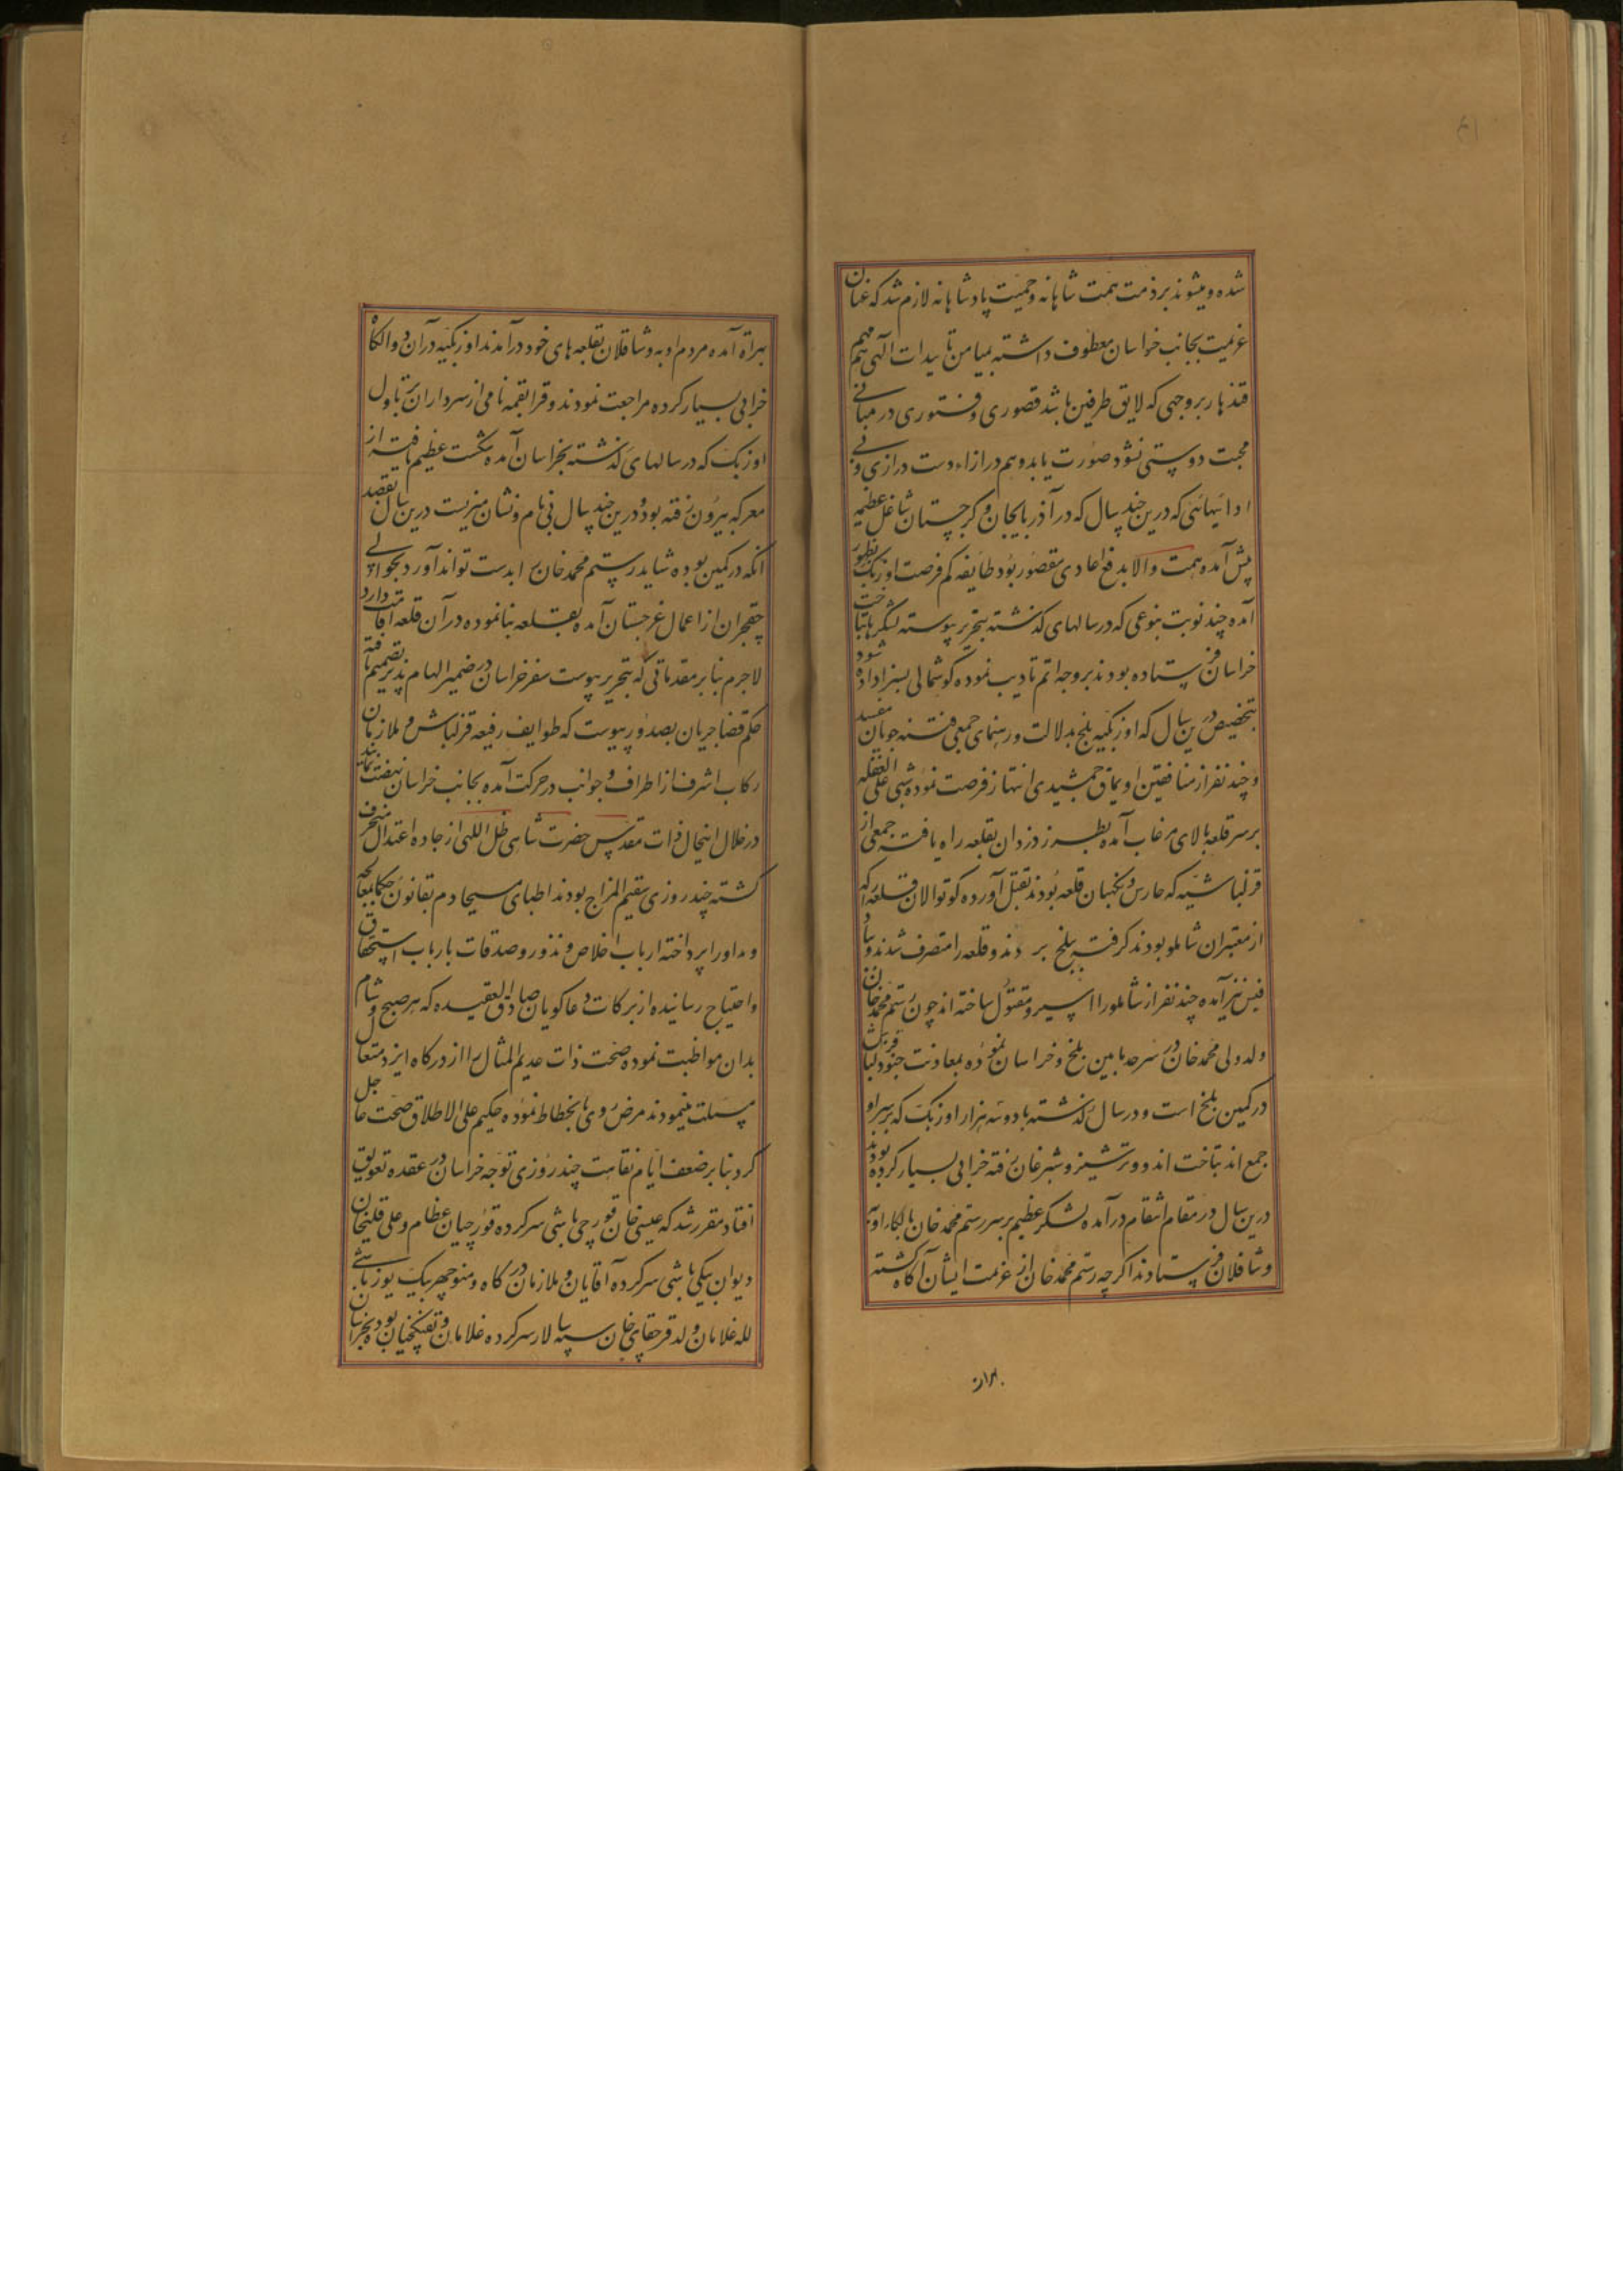 شده و میشوند بر ذمت همت شاهانه و حمیت پادشاهانه لازم شد که عنان
عزیمت بجانب خراسان معطوف داشته بمیامن تاییدات الهی هم مهم
قندهار بر وجهی که لایق طرفین باشد قصوری و فتوری در مبانی
محبت و دوستی نشود صورت یابد و هم در ازاء دست درازی و بی
ادائیهائی که درین چند سال که در آذربایجان و کرجستان مشاغل عظیمه
پیش آمد و همت والا بدفع اعادی مقصور بود طایفه کم فرصت اوزبک بظهور
آمده چند نوبت بنوعی که در سالهای کذشته بتحریر پیوسته لشکرها بتاخت
خراسان فرستاده بودند بر وجه اتم تادیب نموده کوشمالی بسزا داده شود
بتخصیص درین سال که اوزبکیه بلخ بدلالت و رهنمای جمعی فتنه جویان مفسد
و چند نفر از منافقین اویماق جمشیدی انتهاز فرصت نموده شبی علی الغفله
بر سر قلعه بالای مرغاب آمده بطرز دزدان بقلعه راه یافته جمعی از
قزلباشیه که حارس و نکهبان قلعه بودند بقتل آورده کوتوالان قلعه را که
از معتبران شاملو بودند کرفته ببلخ بردند و قلعه را متصرف شدند و
نیز آمده چند نفر از شاملو را اسیر و مقتول ساخته اند چون رستم محمد خان
ولد ولی محمد خان در سرحد مابین بلخ و خراسان بوده بمعاونت جنود قزلباش
در کمین بلخ است و در سال کذشته با دو سه هزار اوزبک که بر سر او
جمع اند بتاخت اندوو ترشیز و شبرغان رفته خرابی بسیار کرده بودند
درین سال در مقام انتقام درآمده لشکر عظیم بر سر رستم محمد خان بالکاء اوبه
و شاقلان فرستادند اکرچه رستم محمد خان از عزیمت ایشان آکاه کشته
بهراة
بهراة آمده مردم اوبه و شاقلان بقلعه های خود درآمدند اوزبکیه در آن دو الکاه
خرابی بسیار کرده مراجعت نمودند و قرابقمه نامی از سرداران یتاول
اوزبک که در سالهای کذشته بخراسان آمده شکست عظیم یافته از
معرکه بیرون رفته بود و درین چند سال بی نام و نشان میزیست درین سال بقصد
آنکه در کمین بوده شاید رستم محمد خان را بدست تواند آورد بحوالی
چقچران از اعمال غرجستان آمده قلعه بنا نموده در آن قلعه اقامت دارد
لاجرم بنابر مقدماتی که بتحریر پیوست سفر خراسان در ضمیر الهام پذیر تصمیم یافته
حکم قضا جریان بصدور پیوست که طوایف رفیعه قزلباش و ملازمان
رکاب اشرف از اطراف و جوانب در حرکت آمده بجانب خراسان نهضت نمایند
در خلال اینحال ذات مقدس حضرت شاهی ظل اللهی از جاده اعتدال منحرف
کشته چند روزی سقیم المزاج بودند اطبای مسیحا دم بقانون حکما بمعالجه
و مداوا پرداخته ارباب اخلاص نذور و صدقات بارباب استحقاق
و احتیاج رسانیده از برکات دعاکویان صادق العقیده که هر صبح و شام
بدان مواظبت نموده صحت ذات عدیم المثال را از درکاه ایزد متعال
مسئلت مینمودند مرض روی بانحطاط نموده حکیم علی الاطلاق صحت عاجل
کرد بنابر ضعف ایام نقاهت چند روزی توجه خراسان در عقده تعویق
افتاد مقرر شد که عیسی خان قورچی باشی سرکرده قورچیان عظام و علی قلیخان
دیوان بیکی باشی سرکرده آقایان و ملازمان درکاه و منوچهر بیک یوزباشی
لله غلامان ولد قرجقای خان سپه سالار سرکرده غلامان و تفنکچیان بوده بخراسان